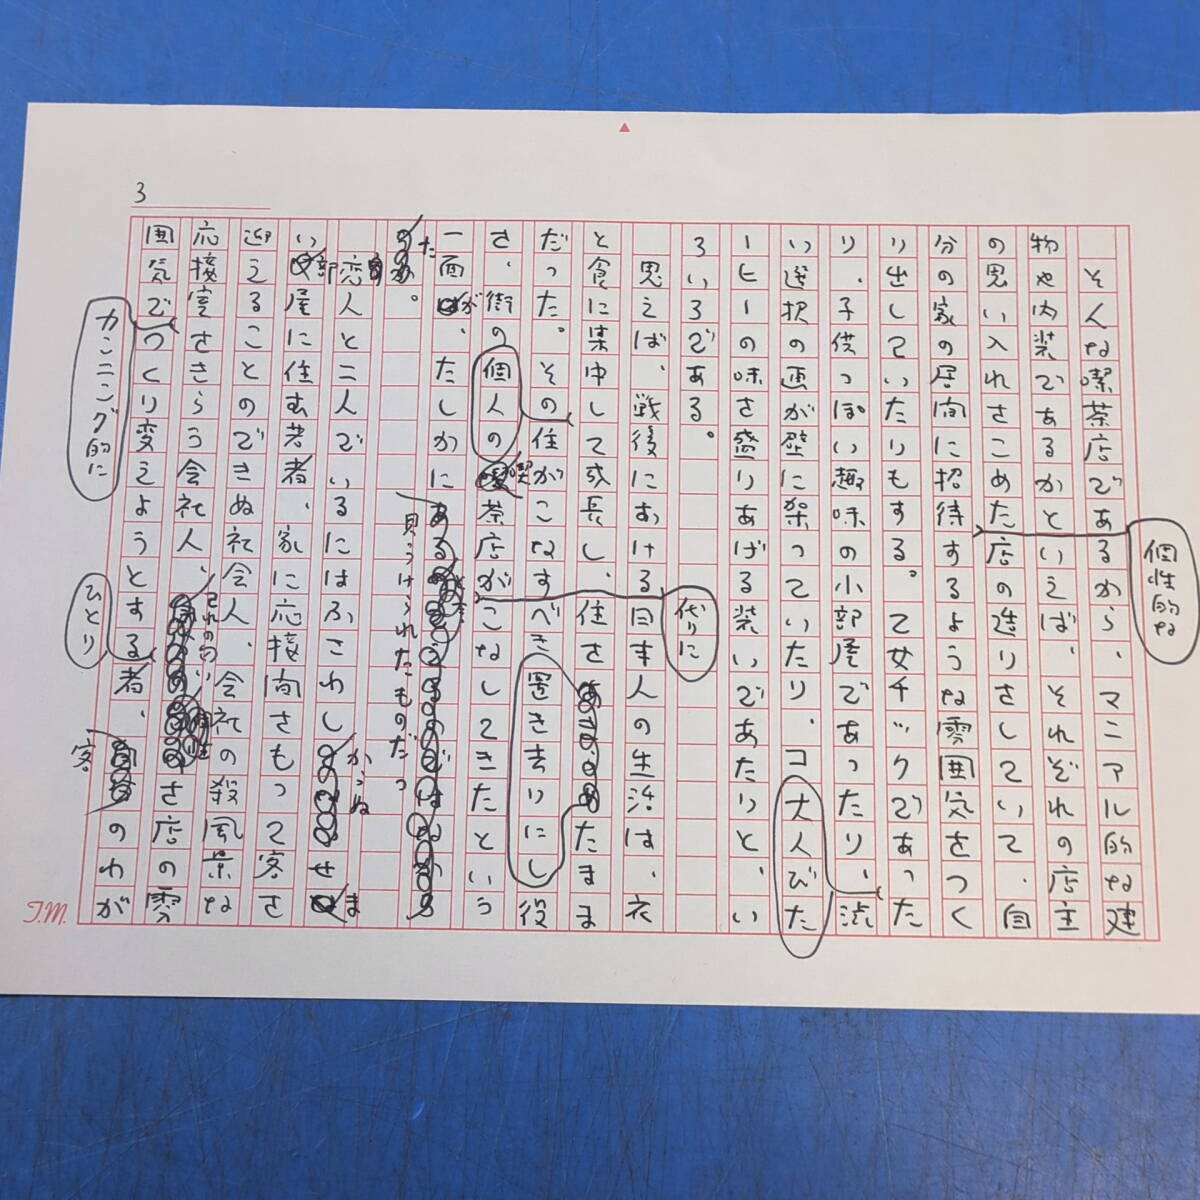 3
個性的な
そんな喫茶店であるから、マニアル的な建
物や内装であるかといえば、それぞれの店主
の思い入れをこめた店の造りをしていて、自
分の家の居間に招待するような雰囲気をつく
り出していたりもする。乙女チックであった
り、子供っぽい趣味の小部屋であったり、渋
い選択の画が壁に架っていたり、コ
大人びた
ーヒーの味を盛りあげる装いであたりと、い
ろいろである。
代りに
思えば、戦後における日本人の生活は、衣
と食に集中して成長し、住を
たまま
置き去りにし
だった。その住がこなすべき
役
を、街の個人の喫茶店がこなしてきたという
一面が、たしかに
見うけられたものだっ
た
。
恋人と二人でいるにはふさわし
からぬ
せま
い部屋に住む若者、家に応接間をもって客を
迎えることのできぬ社会人、会社の殺風景な
応接室をきらう会社人、
を店の雰
囲気でつくり変えようとする者、
客
のわが
カンニング的に
ひとり
T.M.